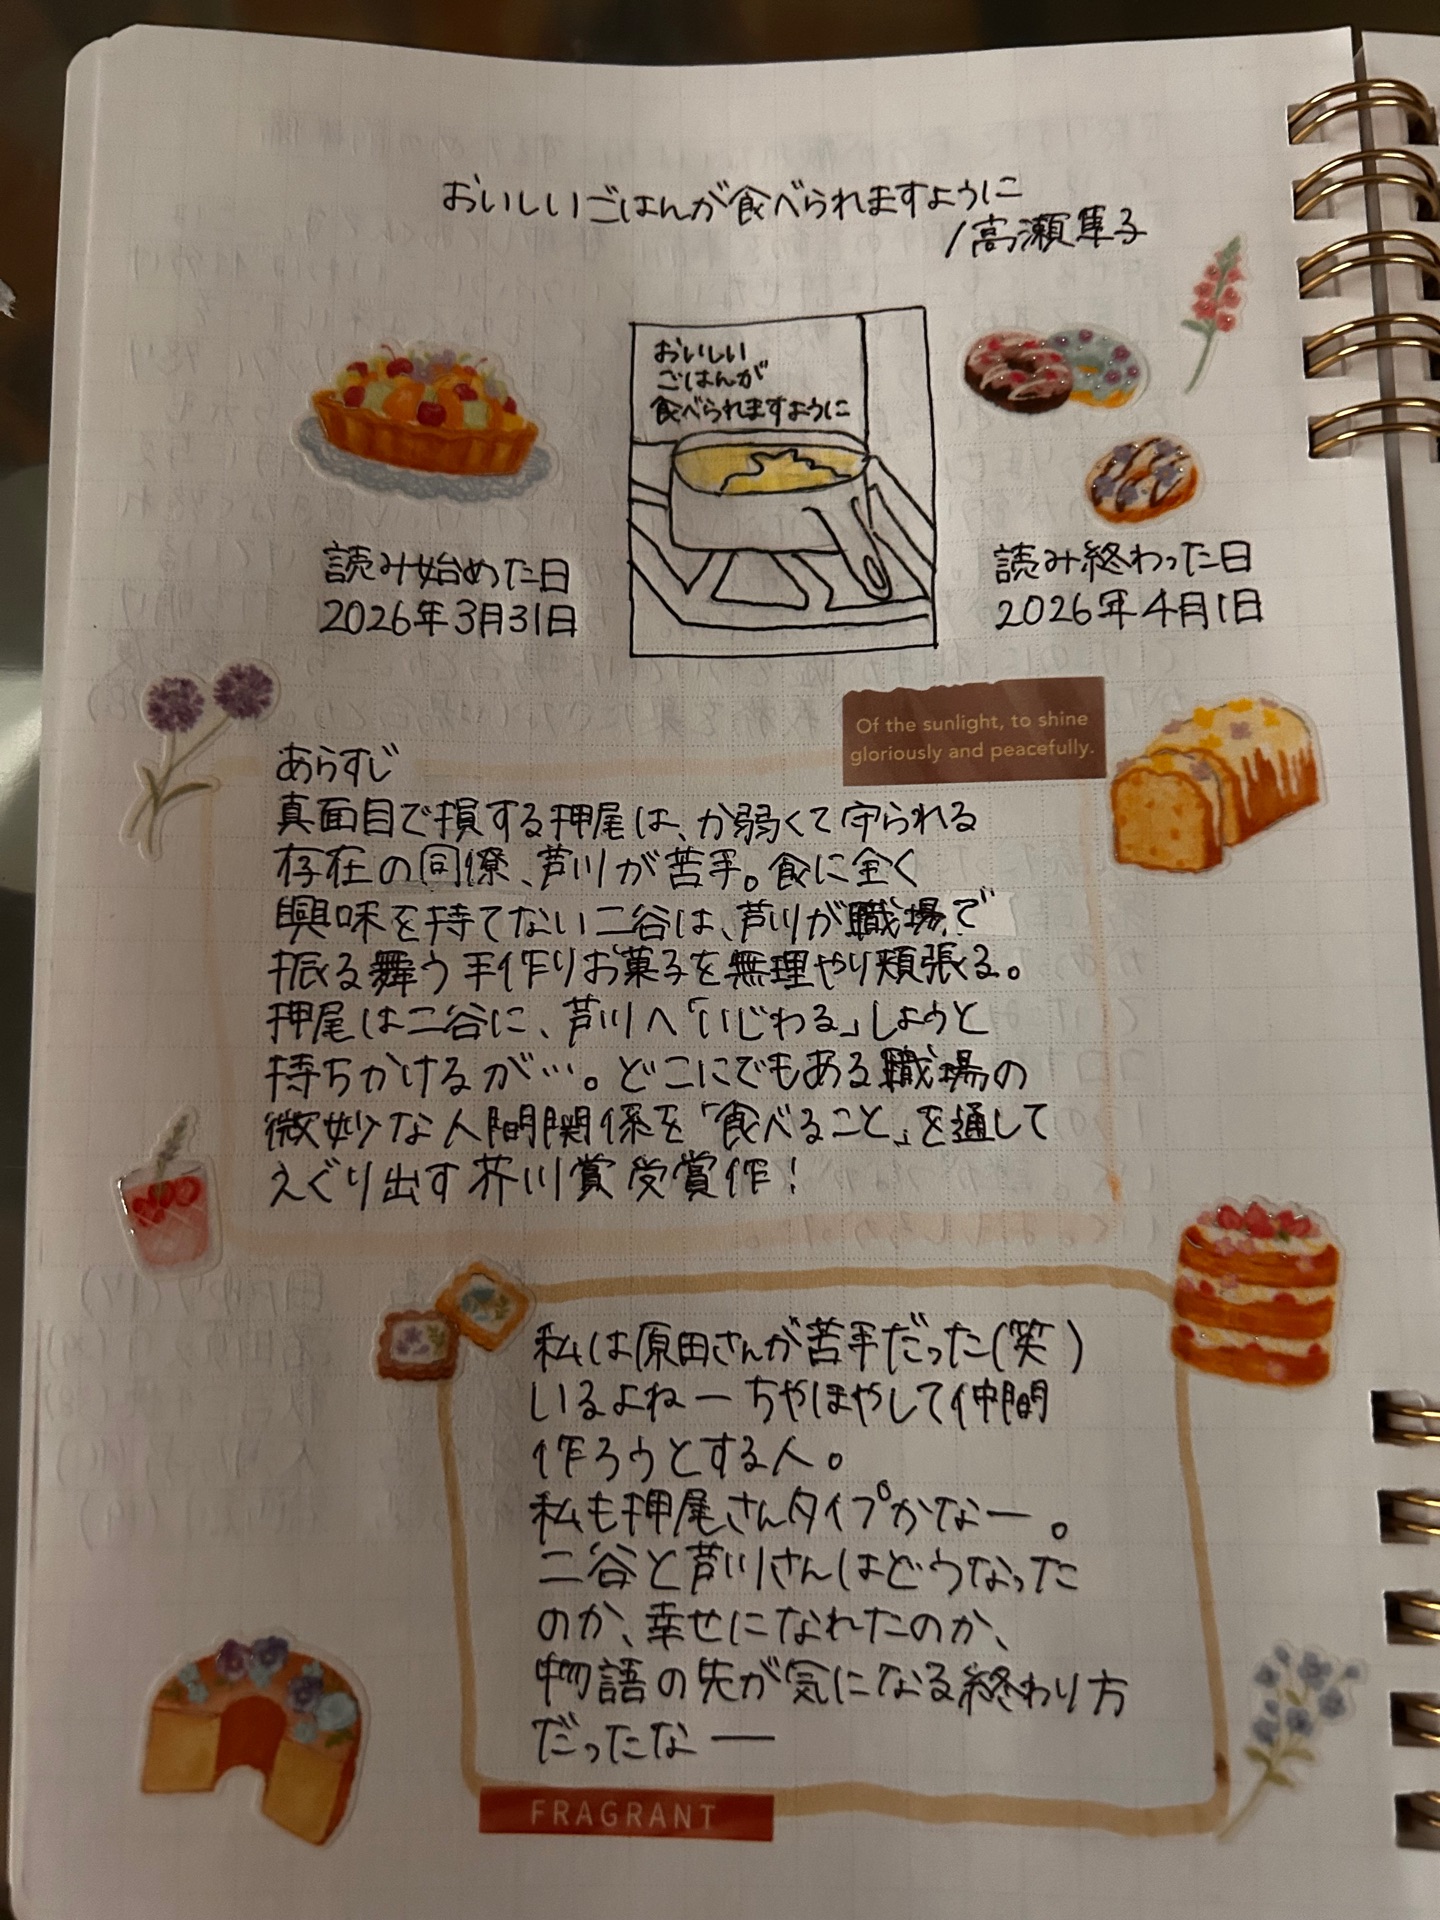 おいしいごはんが食べられますように
/高瀬隼子
おいしい
ごはんが
食べられますように
読み始めた日
2026年3月31日
読み終わった日
2026年4月1日
Of the sunlight, to shine
gloriously and peacefully.
あらすじ
真面目で損する押尾は、か弱くて守られる
存在の同僚、芦川が苦手。食に全く
興味を持てない二谷は、芦川が職場で
振る舞う手作りお菓子を無理やり頬張る。
押尾は二谷に、芦川へ「いじわる」しようと
持ちかけるが…。どこにでもある職場の
微妙な人間関係を「食べること」を通して
えぐり出す芥川賞受賞作!
私は原田さんが苦手だった(笑)
いるよねーちやほやして仲間
作ろうとする人。
私も押尾さんタイプかなー。
二谷と芦川さんはどうなった
のか、幸せになれたのか、
物語の先が気になる終わり方
だったなー
FRAGRANT